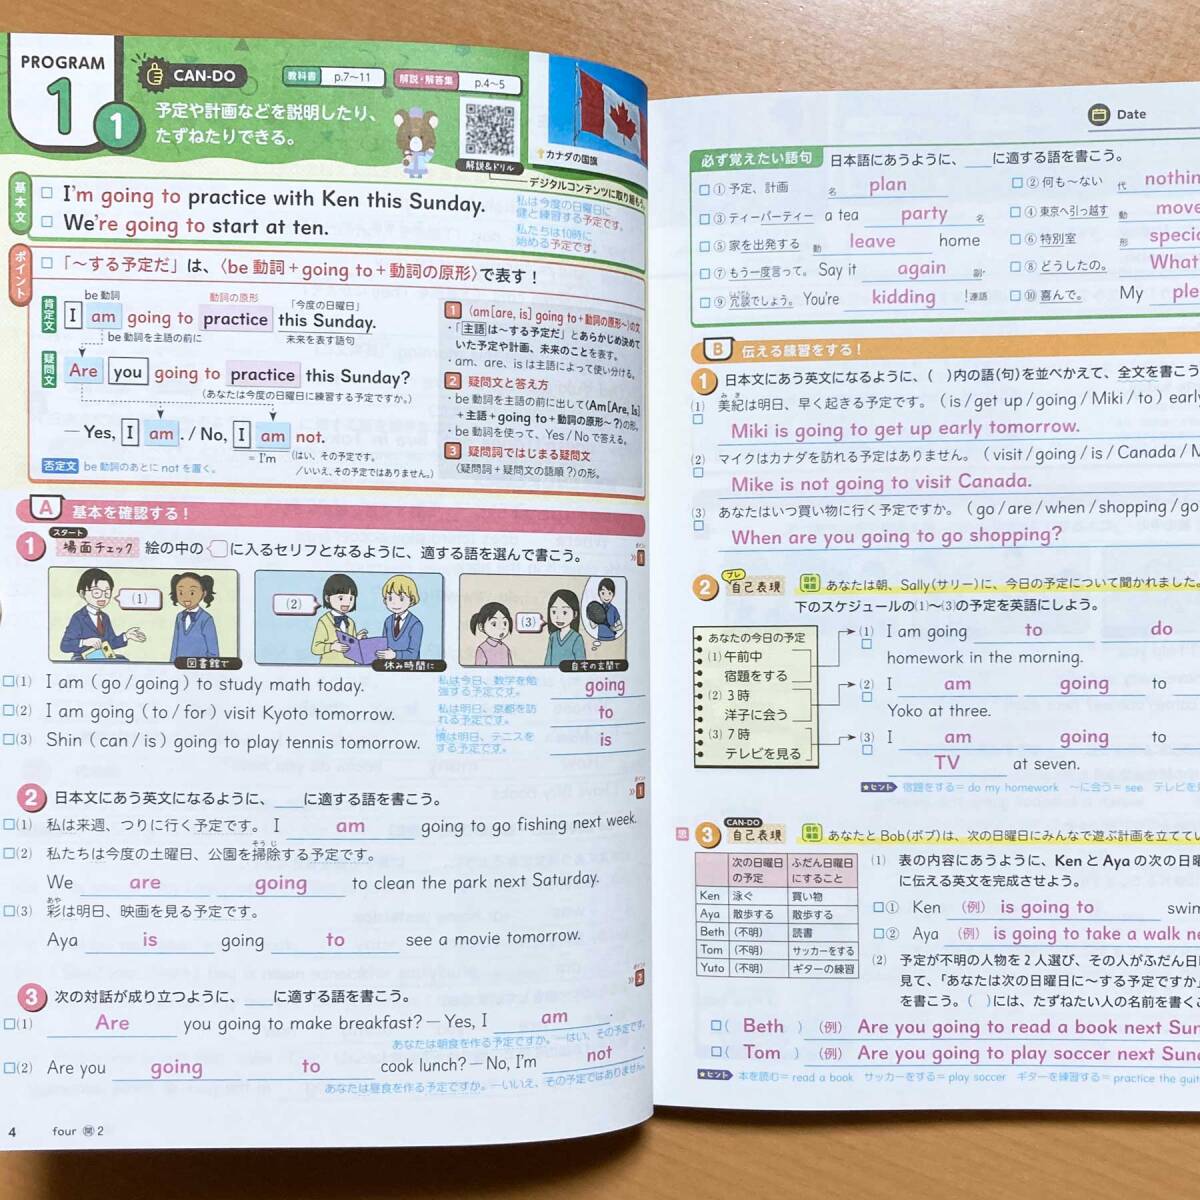 PROGRAM
1
1
CAN-DO
教科書 p.7~11
解説・解答集 p.4~5
予定や計画などを説明したり、
たずねたりできる。
解説&ドリル
カナダの国旗
デジタルコンテンツに取り組もう。
基本文
I'm going to practice with Ken this Sunday.
私は今度の日曜日に
健と練習する予定です。
We're going to start at ten.
私たちは10時に
始める予定です。
ポイント
「〜する予定だ」は、〈be動詞+going to+動詞の原形〉で表す！
肯定文
be動詞
動詞の原形
「今度の日曜日」
I am going to practice this Sunday.
be動詞を主語の前に
未来を表す語句
疑問文
Are you going to practice this Sunday?
(あなたは今度の日曜日に練習する予定ですか。)
— Yes, I am. / No, I am not.
= I'm
(はい、その予定です。
/いいえ、その予定ではありません。)
否定文 be動詞のあとにnotを置く。
1 〈am[are, is] going to+動詞の原形〜〉の文
・「主語は〜する予定だ」とあらかじめ決めて
いた予定や計画、未来のことを表す。
・am、are、isは主語によって使い分ける。
2 疑問文と答え方
・be動詞を主語の前に出して〈Am[Are, Is]
+主語+going to+動詞の原形〜?〉の形。
・be動詞を使って、Yes/Noで答える。
3 疑問詞ではじまる疑問文
〈疑問詞+疑問文の語順?〉の形。
A 基本を確認する！
スタート
1 場面チェック 絵の中の に入るセリフとなるように、適する語を選んで書こう。
ポイント
1
(1)
図書館で
(2)
休み時間に
(3)
自宅の玄関で
(1) I am ( go / going ) to study math today.
私は今日、数学を勉
強する予定です。
going
(2) I am going ( to / for ) visit Kyoto tomorrow.
私は明日、京都を訪
れる予定です。
to
(3) Shin ( can / is ) going to play tennis tomorrow.
慎は明日、テニスを
する予定です。
is
2 日本文にあう英文になるように、___に適する語を書こう。
ポイント
1
(1) 私は来週、つりに行く予定です。 I am going to go fishing next week.
(2) 私たちは今度の土曜日、公園を掃除する予定です。
そうじ
We are going to clean the park next Saturday.
あや
(3) 彩は明日、映画を見る予定です。
Aya is going to see a movie tomorrow.
3 次の対話が成り立つように、___に適する語を書こう。
ポイント
2
(1) Are you going to make breakfast? — Yes, I am .
あなたは朝食を作る予定ですか。—はい、その予定です。
(2) Are you going to cook lunch? — No, I'm not .
あなたは昼食を作る予定ですか。—いいえ、その予定ではありません。
4 four 開2
Date
必ず覚えたい語句 日本語にあうように、___に適する語を書こう。
① 予定、計画 名 plan
② 何も〜ない 代
③ ティーパーティー a tea party 名
④ 東京へ引っ越す 動 move
⑤ 家を出発する 動 leave home
⑥ 特別室 形
⑦ もう一度言って。 Say it again 副.
⑧ どうしたの。
じょうだん
⑨ 冗談でしょう。 You're kidding ! 連語
⑩ 喜んで。 My
B 伝える練習をする！
1 日本文にあう英文になるように、( )内の語(句)を並べかえて、全文を書こう
みき
(1) 美紀は明日、早く起きる予定です。 ( is / get up / going / Miki / to ) early
Miki is going to get up early tomorrow.
(2) マイクはカナダを訪れる予定はありません。 ( visit / going / is / Canada /
Mike is not going to visit Canada.
(3) あなたはいつ買い物に行く予定ですか。 ( go / are / when / shopping /
When are you going to go shopping?
プレ
2 自己表現 目的 場面 あなたは朝、Sally(サリー)に、今日の予定について聞かれました。
下のスケジュールの(1)〜(3)の予定を英語にしよう。
あなたの今日の予定
(1) 午前中
宿題をする
(2) 3時
洋子に会う
(3) 7時
テレビを見る
(1) I am going to do
homework in the morning.
(2) I am going to
Yoko at three.
(3) I am going to
TV at seven.
ヒント 宿題をする= do my homework 〜に会う= see テレビを
思
CAN-DO
3 自己表現 目的 場面 あなたとBob(ボブ)は、次の日曜日にみんなで遊ぶ計画を立てて
次の日曜日の予定 ふだん日曜日にすること
Ken 泳ぐ 買い物
Aya 散歩する 散歩する
Beth (不明) 読書
Tom (不明) サッカーをする
Yuto (不明) ギターの練習
(1) 表の内容にあうように、KenとAyaの次の日曜
に伝える英文を完成させよう。
① Ken (例) is going to swim
② Aya (例) is going to take a walk
(2) 予定が不明の人物を2人選び、その人がふだん日
見て、「あなたは次の日曜日に〜する予定ですか」
を書こう。( )には、たずねたい人の名前を書く
( Beth ) (例) Are you going to read a book next
( Tom ) (例) Are you going to play soccer next
ヒント 本を読む= read a book サッカーをする= play soccer ギターを練習する= practice the